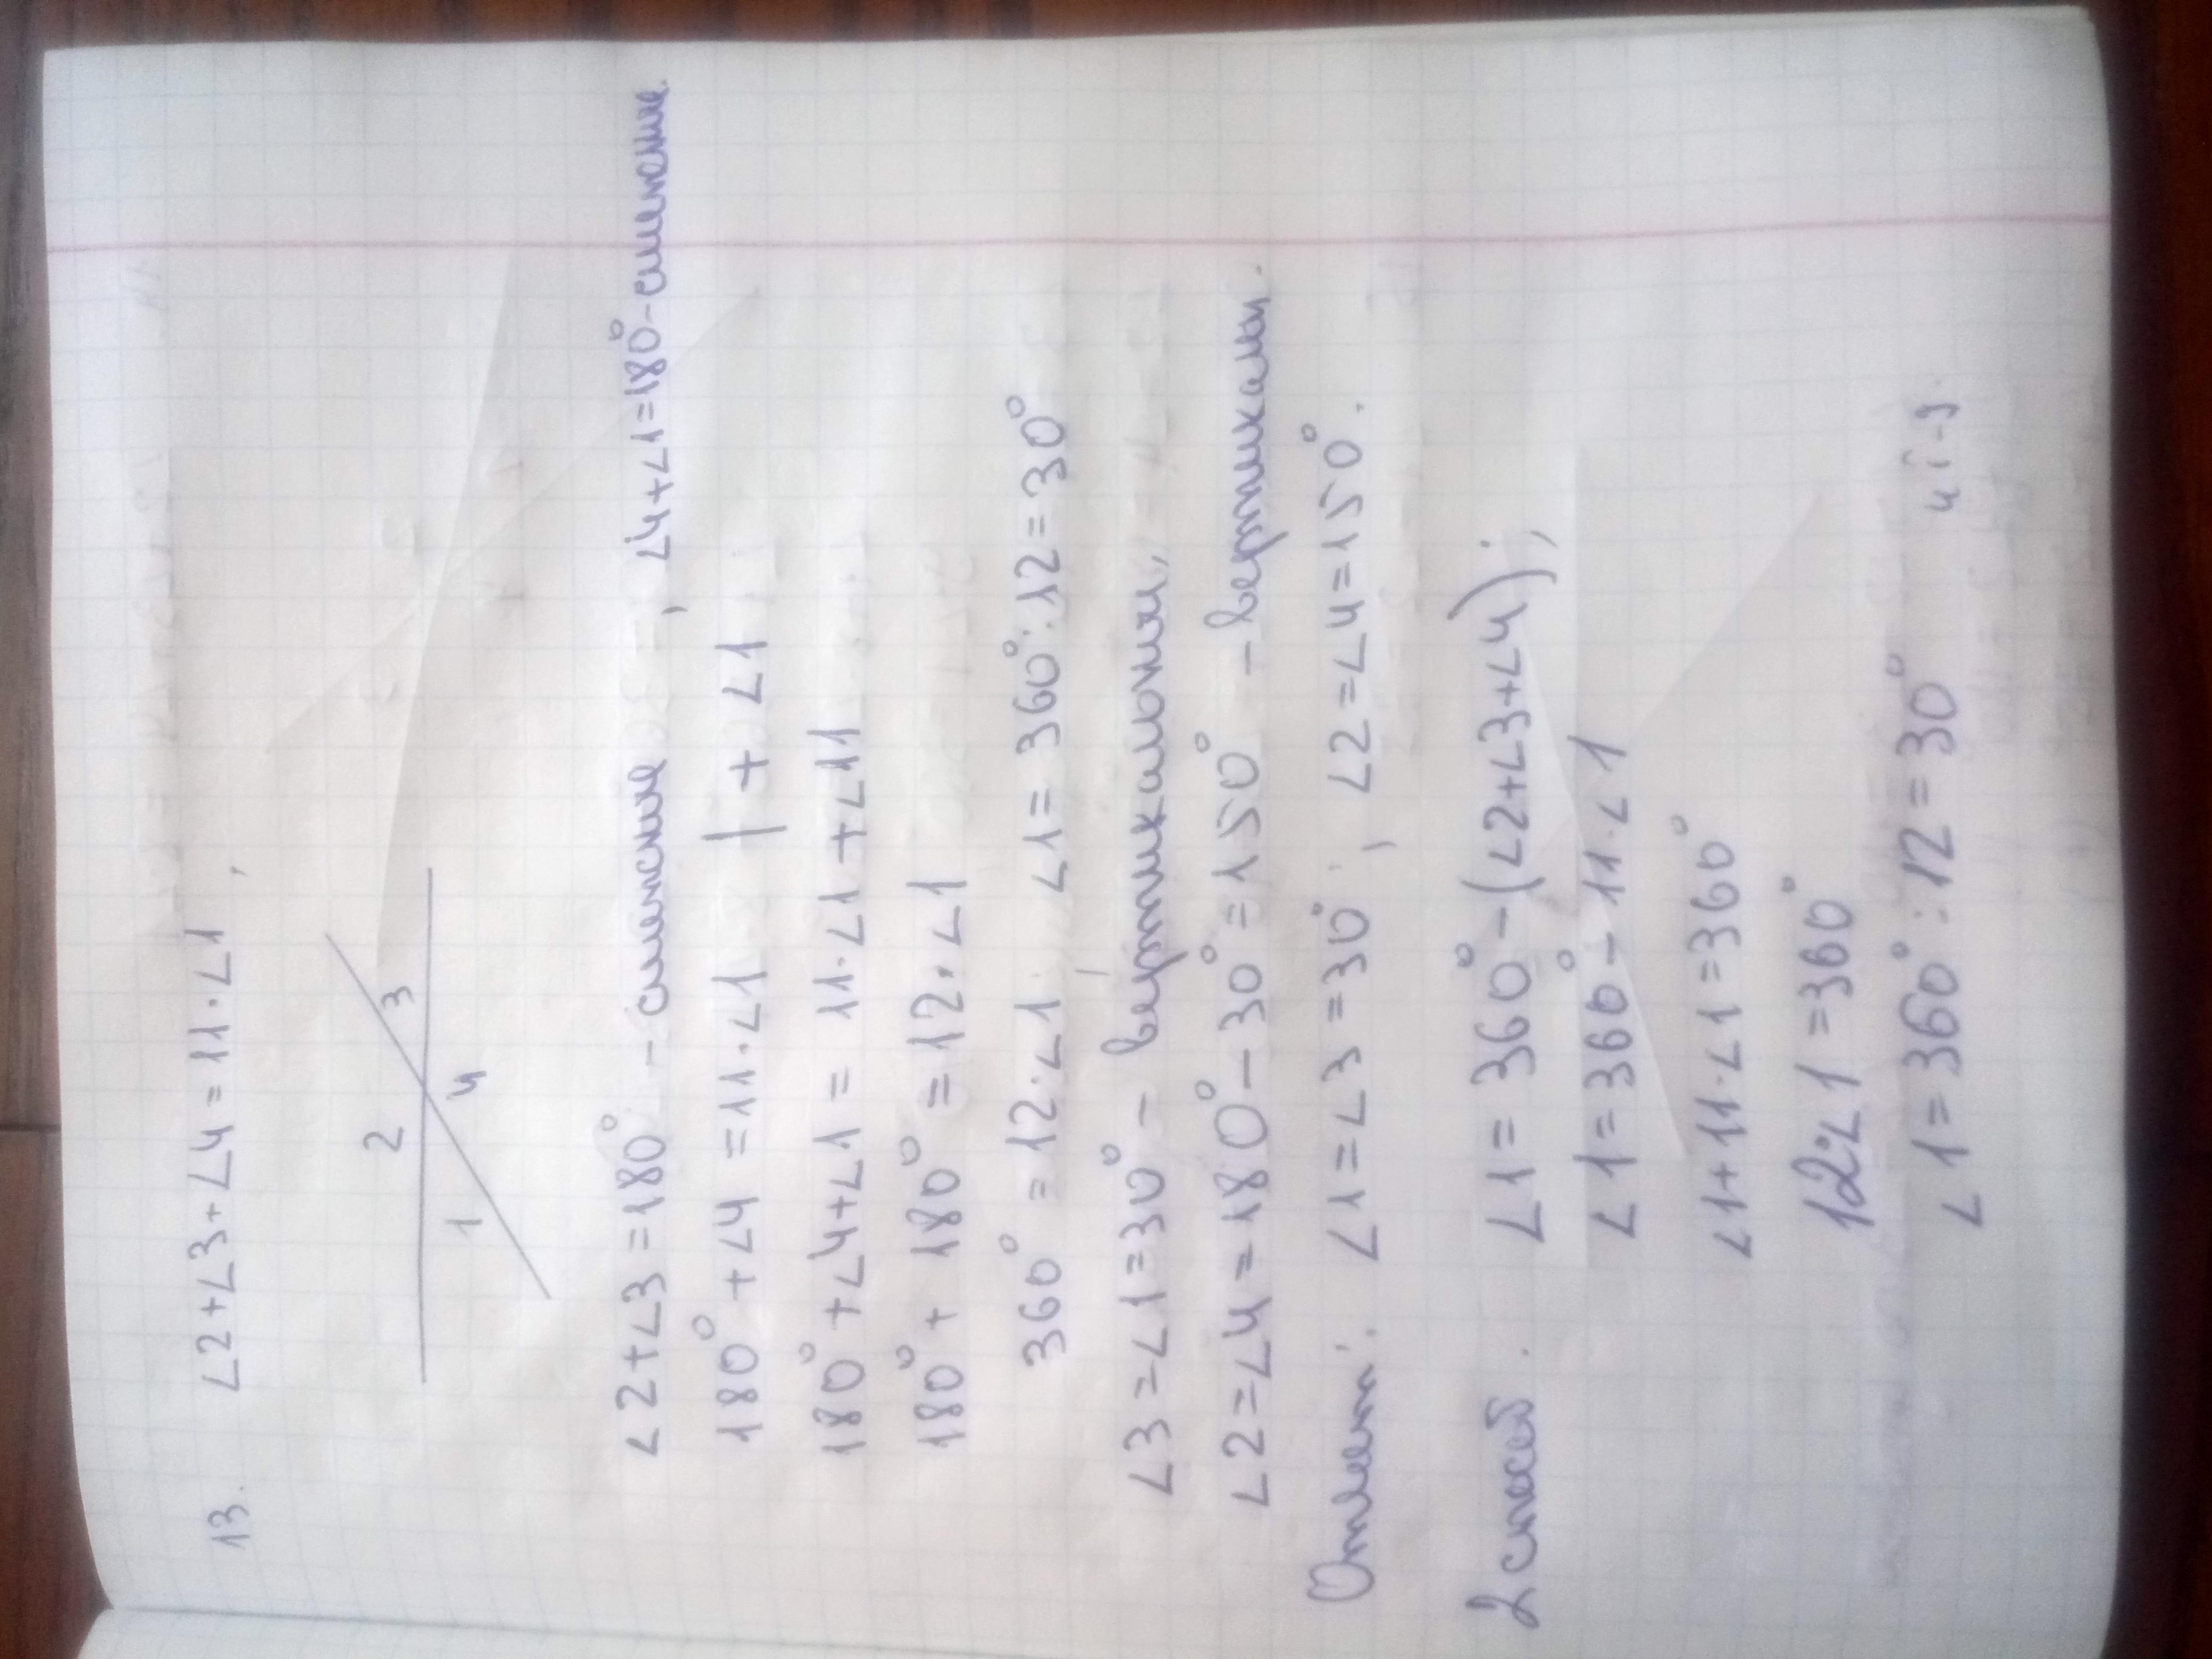 13. ∠2+∠3+∠4=11·∠1,
2 3
1 4
∠2+∠3=180° - смежные, ∠4+∠1=180°-смежные.
180°+∠4=11·∠1 | + ∠1
180°+∠4+∠1= 11·∠1+∠11
180°+ 180° =12·∠1
360° =12·∠1. ∠1= 360°:12=30°
∠3=∠1=30° - вертикальные,
∠2=∠4=180°-30°=150° -вертикальн.
Ответ: ∠1=∠3=30°, ∠2=∠4=150°.
2 способ. ∠1= 360°-(∠2+∠3+∠4);
∠1=360°-11·∠1
∠1+11·∠1=360°
12·∠1=360°
∠1=360°:12=30° и т-д.